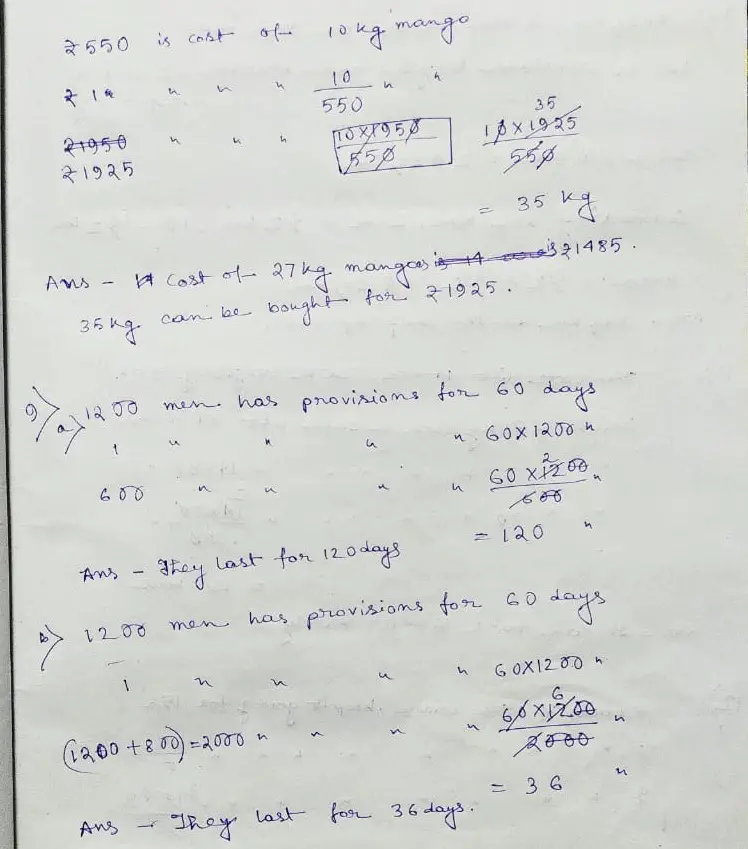 ₹550 is cost of 10kg mango
₹1 " " " 10/550 " "
₹1950 " " " 10×1950/550
₹1925 10×1925/550 35
= 35 kg
Ans - Cost of 27kg mangoes is ₹1485.
35kg can be bought for ₹1925.
9) a) 1200 men has provisions for 60 days
1 " " " " 60×1200 "
600 " " " " 60×1200/600 2 "
= 120 "
Ans - They last for 120 days
b) 1200 men has provisions for 60 days
1 " " " " 60×1200 "
(1200+800)=2000 " " " " 60×1200/2000 6 "
= 36 "
Ans - They last for 36 days.